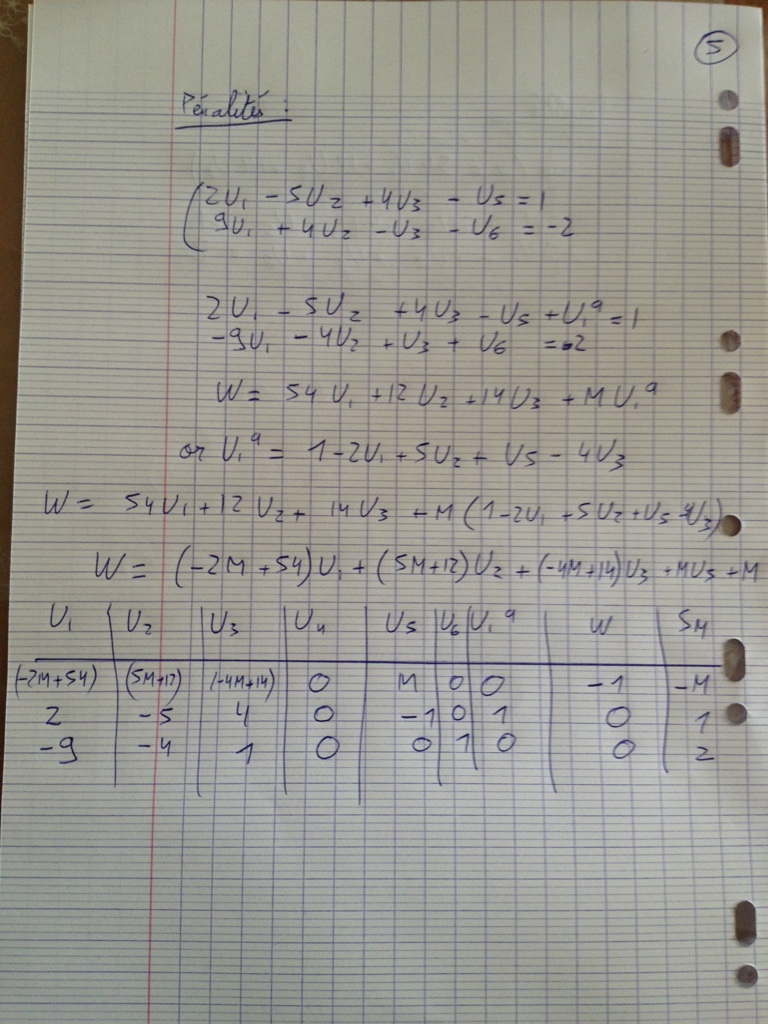 5
Pénalités :
2U₁ - 5U₂ + 4U₃ - U₅ = 1
9U₁ + 4U₂ - U₃ - U₆ = -2
2U₁ - 5U₂ + 4U₃ - U₅ + U₁ᵃ = 1
-9U₁ - 4U₂ + U₃ + U₆ = 2
W = 54U₁ + 12U₂ + 14U₃ + MU₁ᵃ
or U₁ᵃ = 1 - 2U₁ + 5U₂ + U₅ - 4U₃
W = 54U₁ + 12U₂ + 14U₃ + M(1 - 2U₁ + 5U₂ + U₅ - 4U₃)
W = (-2M + 54)U₁ + (5M + 12)U₂ + (-4M + 14)U₃ + MU₅ + M
U₁ U₂ U₃ U₄ U₅ U₆ U₁ᵃ W SM
(-2M+54) (5M+12) (-4M+14) 0 M 0 0 -1 -M
2 -5 4 0 -1 0 1 0 1
-9 -4 1 0 0 1 0 0 2